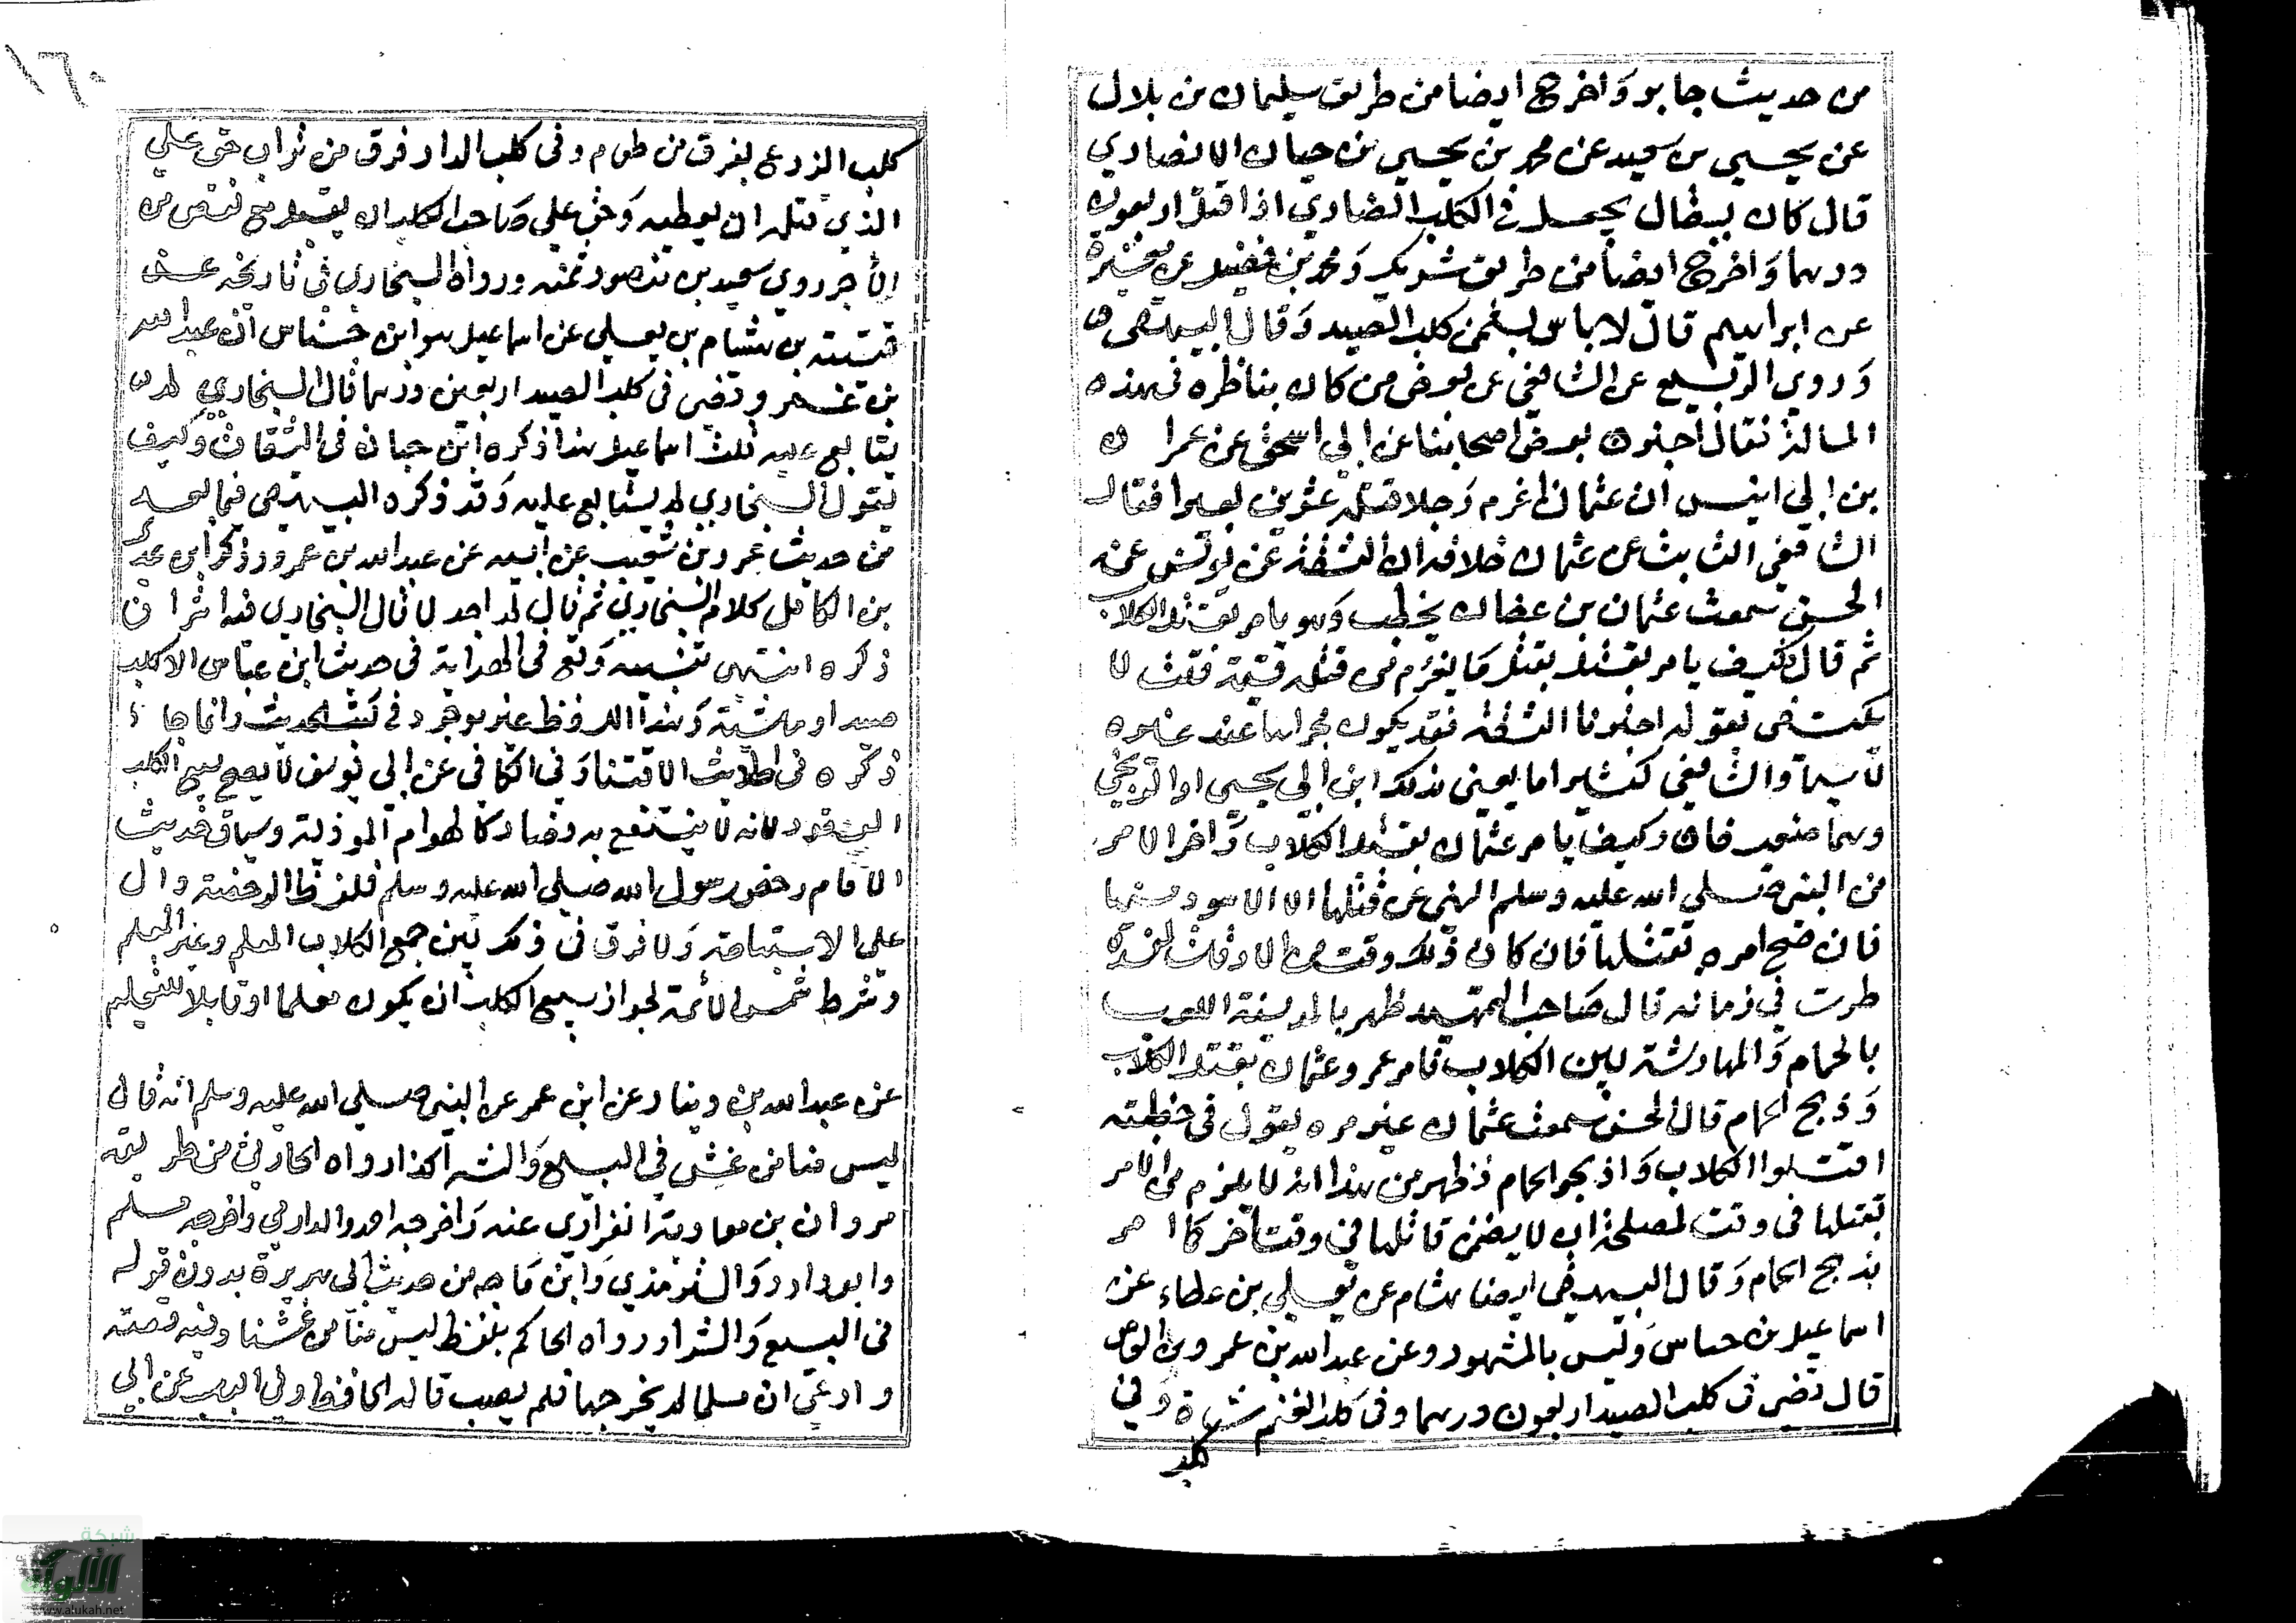 من حديث جابر وَاخرج ايضا من طريق سليمان بن بلال
عن يحيى بن سعيد عن محمد بن يحيى بن حبان الانصاري
قال كان يقال يجعل في الكلب الضاري اذا قتل اربعون
درهما وَاخرج ايضا من طريق شريك وَمحمد بن فضيل عن مغيرة
عن ابراهيم قال لا باس بثمن كلب الصيد وَقال البيهقي
وَروي الربيع عن الشافعي عن بعض من كان يناظره في هذه
المسالة فقال اخبرني بعض اصحابنا عن ابي اسحق عن عمران
بن ابي انيس ان عثمان اغرم رَجلا قتله عشرين بعيرا فقال
الشافعي الثابت عن عثمان خلافه ان الثقة عن يونس عن
الحسن سمعت عثمان بن عفان يخطب وَهو يامر بقتل الكلاب
ثم قال فكيف يامر بقتل مَا يغرم من قتله قيمة قلت لا
يكتفى بقوله اخبرنا الثقة فقد يكون مجروحا عند غيره
لَا سيما وَالشافعي كثيرا ما يعني بذلك ابن ابي يحيى او الزنجي
وهما ضعيفان وكيف يامر عثمان بقتل الكلاب وَاخر الامر
من النبي صلى الله عليه وسلم النهي عن قتلها الا الاسود منها
فان صح امره بقتلها فان كان ذلك وقت لمفسدة
طرت في زمانه قال صَاحب التمهيد ظهر بالمدينة اللعب
بالحمام وَالمهارشة بين الكلاب فامر عمر وعثمان بقتل الكلاب
وَذبح الحمام قال الحسن سمعت عثمان غير مره يقول في خطبته
اقتلوا الكلاب وَاذبحوا الحمام فظهر من هذا انه لا يلزم من الامر
بقتلها في وقت لمصلحة ان لا يضمن قاتلها في وقت اخر كما امر
بذبح الحمام وَقال البيهقي ايضا هشام عن يعلي بن عطاء عن
اسماعيل بن حساس وَليس بالمشهور وعن عبد الله بن عمرو بن العاص
قال قضى في كلب الصيد اربعون درهما وفي كلب الغنم شاة وَفي
كلب
١٦٠
كلب الزرع بفرق من طعام وفي كلب الدار فرق من تراب حق علي
الذي قتله ان يعطيه وَحق علي صَاحب الكلب ان يقبله مع نقص من
الأجر روي سعيد بن منصور ثمنه ورواه البخاري في تاريخه عن
قتيبة بن هشام بن يعلي عن اسماعيل هو ابن خساس انه عبد الله
بن عمرو وقضى في كلب الصيد اربعين درهما قال البخاري لم
يتابع عليه قلت اسماعيل هذا ذكره ابن حبان في الثقات وَكيف
يقول البخاري لم يتابع عليه وَقد ذكره البيهقي فيما بعد
من حديث عمرو بن شعيب عن ابيه عن عبد الله بن عمرو وذكر ابن عدي
بن الكامل كلام البخاري ثم قال لم اجد لما قال البخاري فيه اثرا
ذكره انتهى تنبيه وَقع في الهداية في حديث ابن عباس الا كلب
صيد او ماشية وَهذا اللفظ غير موجود في كتب الحديث وانما جا
ذكره في احاديث الاقتناء وَفي الكافي عن ابي يوسف لَا يصح بيع الكلب
العقور لانه لَا ينتفع به وصار كالهوام المؤذية وسياق حديث
الامام رخص رسول الله صلى الله عليه وسلم فلفظ الرخصة دال
على الاستباحة وَلا فرق في ذلك بين جميع الكلاب المعلم وغير المعلم
وشرط شمس الائمة لجواز بيع الكلب ان يكون معلما او قابلا للتعليم
عن عبد الله بن دينار عن ابن عمر عن النبي صلى الله عليه وسلم انه قال
ليس منا من غش في البيع وَالشرا كذا رواه الحارثي من طريقه
مروان بن معاوية الفزاري عنه وَاخرجه احمد والدارمي واخرجه مسلم
وابو داود وَالترمذي وَابن مَاجه من حديث ابي هريرة بدون قوله
في البيع وَالشرا ورواه الحاكم بلفظ ليس منا من غشنا وفيه قصة
وادعى ان مسلما لم يخرجها فلم يصب قاله الحافظ وفي الباب عن ابي
شبكة
الألوكة
www.alukah.net